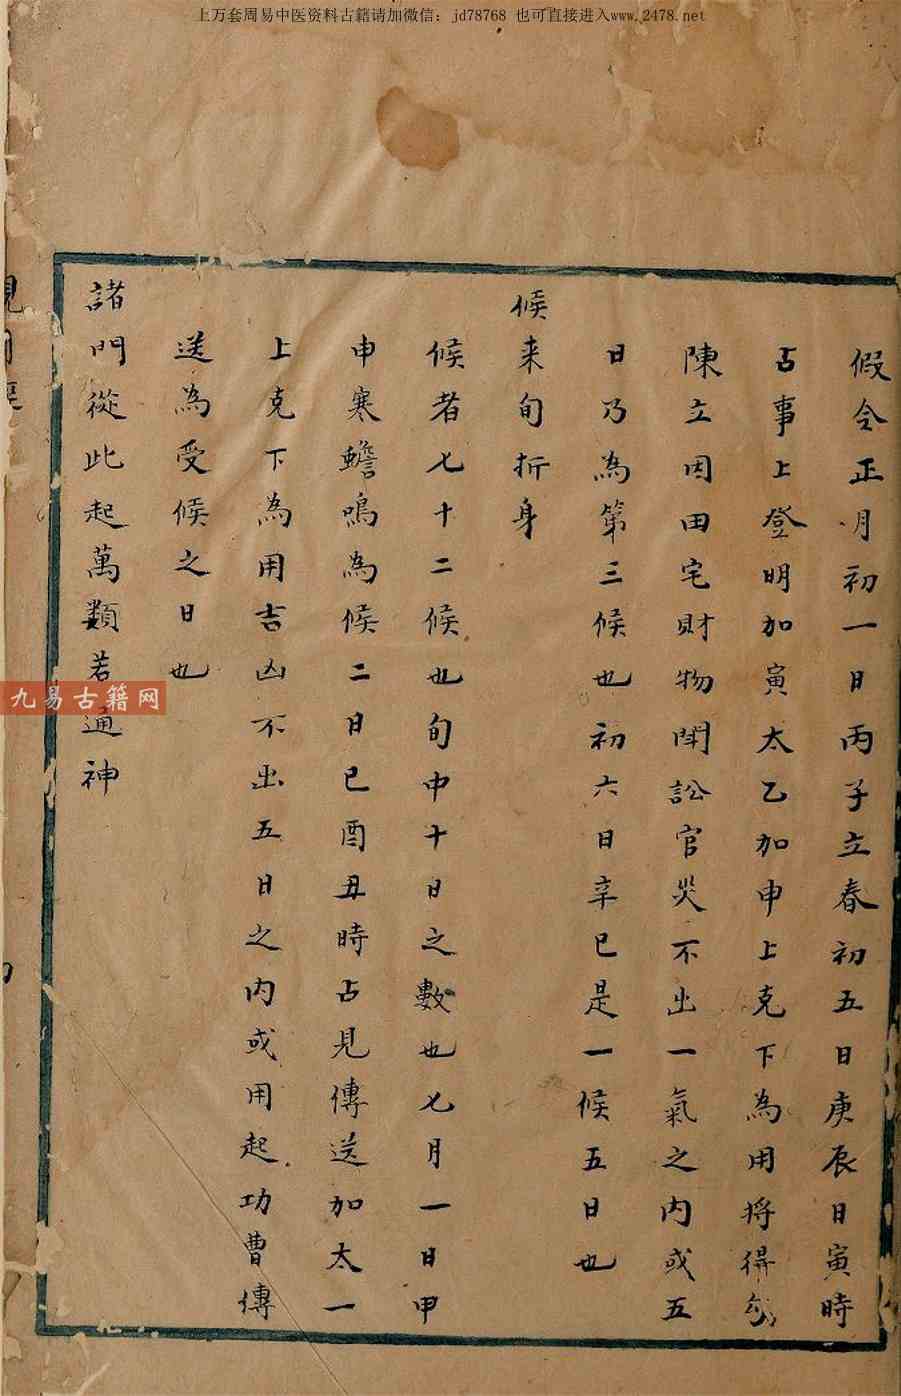 上万套周易中医资料古籍请加微信：jd78768 也可直接进入www.2478.net
假令正月初一日丙子立春初五日庚辰日寅時
占事上登明加寅太乙加申上克下為用將得勾
陳立因田宅財物鬪訟官災不出一氣之内或五
日乃為第三候也初六日辛巳是一候五日也
候来旬折身
候者七十二候也旬中十日之數也七月一日甲
申寒蟾鳴為候二日已酉丑時占見傳送加太一
上克下為用吉凶不出五日之内或用起功曹傳
送為受候之日也
諸門從此起萬類若通神
九易古籍网